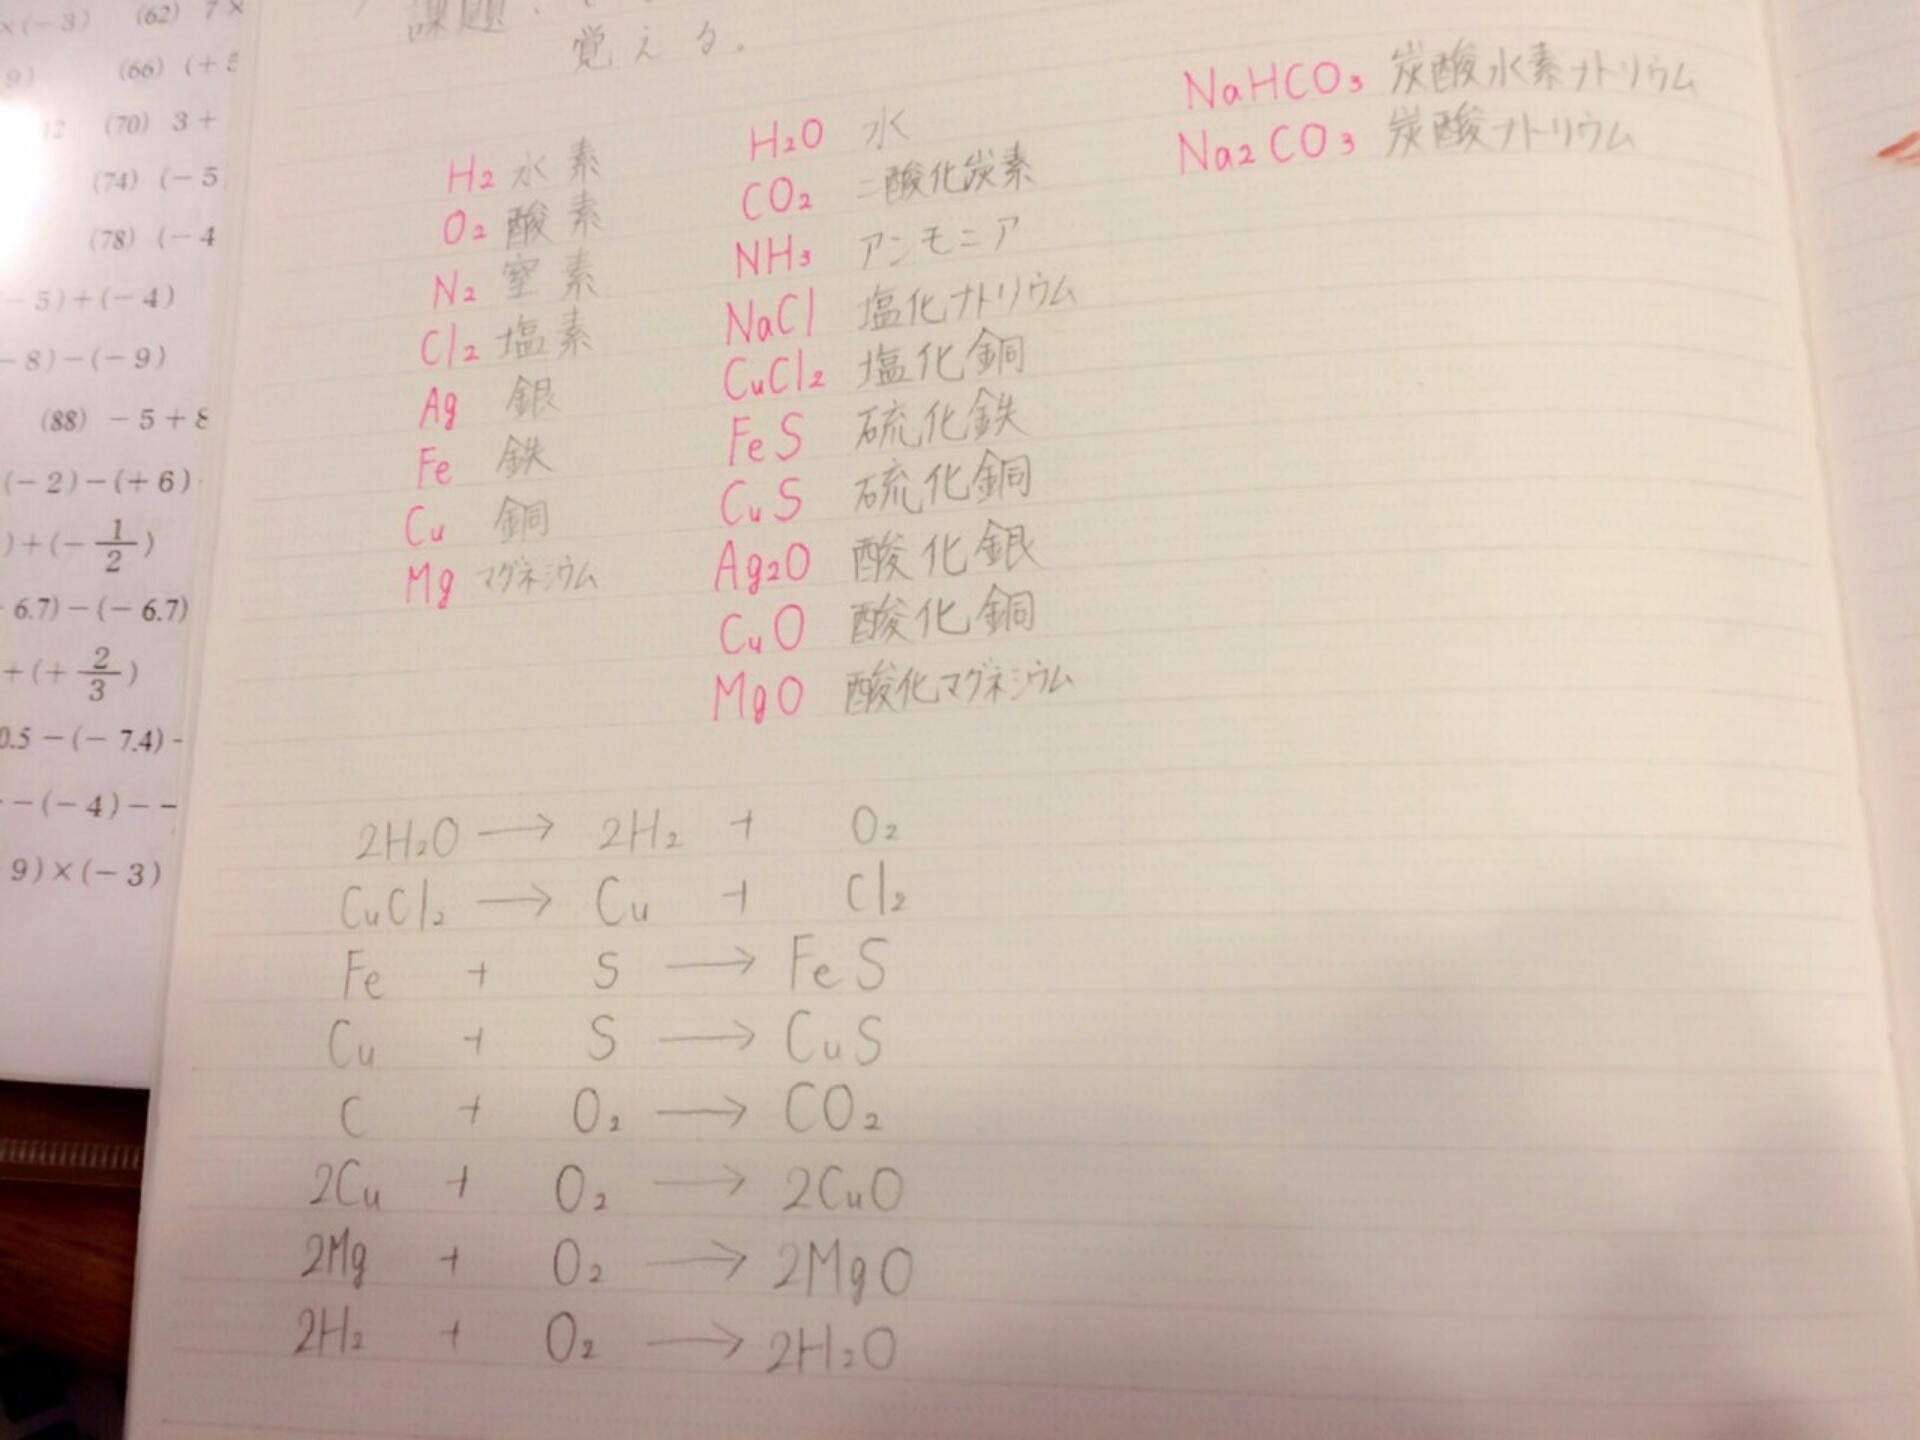 ×(-3) (62) 7×
9) (66) (+5
12 (70) 3+
(74) (-5
(78) (-4
-5)+(-4)
-8)-(-9)
(88) -5+8
(-2)-(+6)
)+(-1/2)
6.7)-(-6.7)
+(+2/3)
0.5-(-7.4)-
-(-4)-
9)×(-3)
課題
覚える。
H₂ 水素
O₂ 酸素
N₂ 窒素
Cl₂ 塩素
Ag 銀
Fe 鉄
Cu 銅
Mg マグネシウム
H₂O 水
CO₂ 二酸化炭素
NH₃ アンモニア
NaCl 塩化ナトリウム
CuCl₂ 塩化銅
FeS 硫化鉄
CuS 硫化銅
Ag₂O 酸化銀
CuO 酸化銅
MgO 酸化マグネシウム
NaHCO₃ 炭酸水素ナトリウム
Na₂CO₃ 炭酸ナトリウム
2H₂O → 2H₂ + O₂
CuCl₂ → Cu + Cl₂
Fe + S → FeS
Cu + S → CuS
C + O₂ → CO₂
2Cu + O₂ → 2CuO
2Mg + O₂ → 2MgO
2H₂ + O₂ → 2H₂O